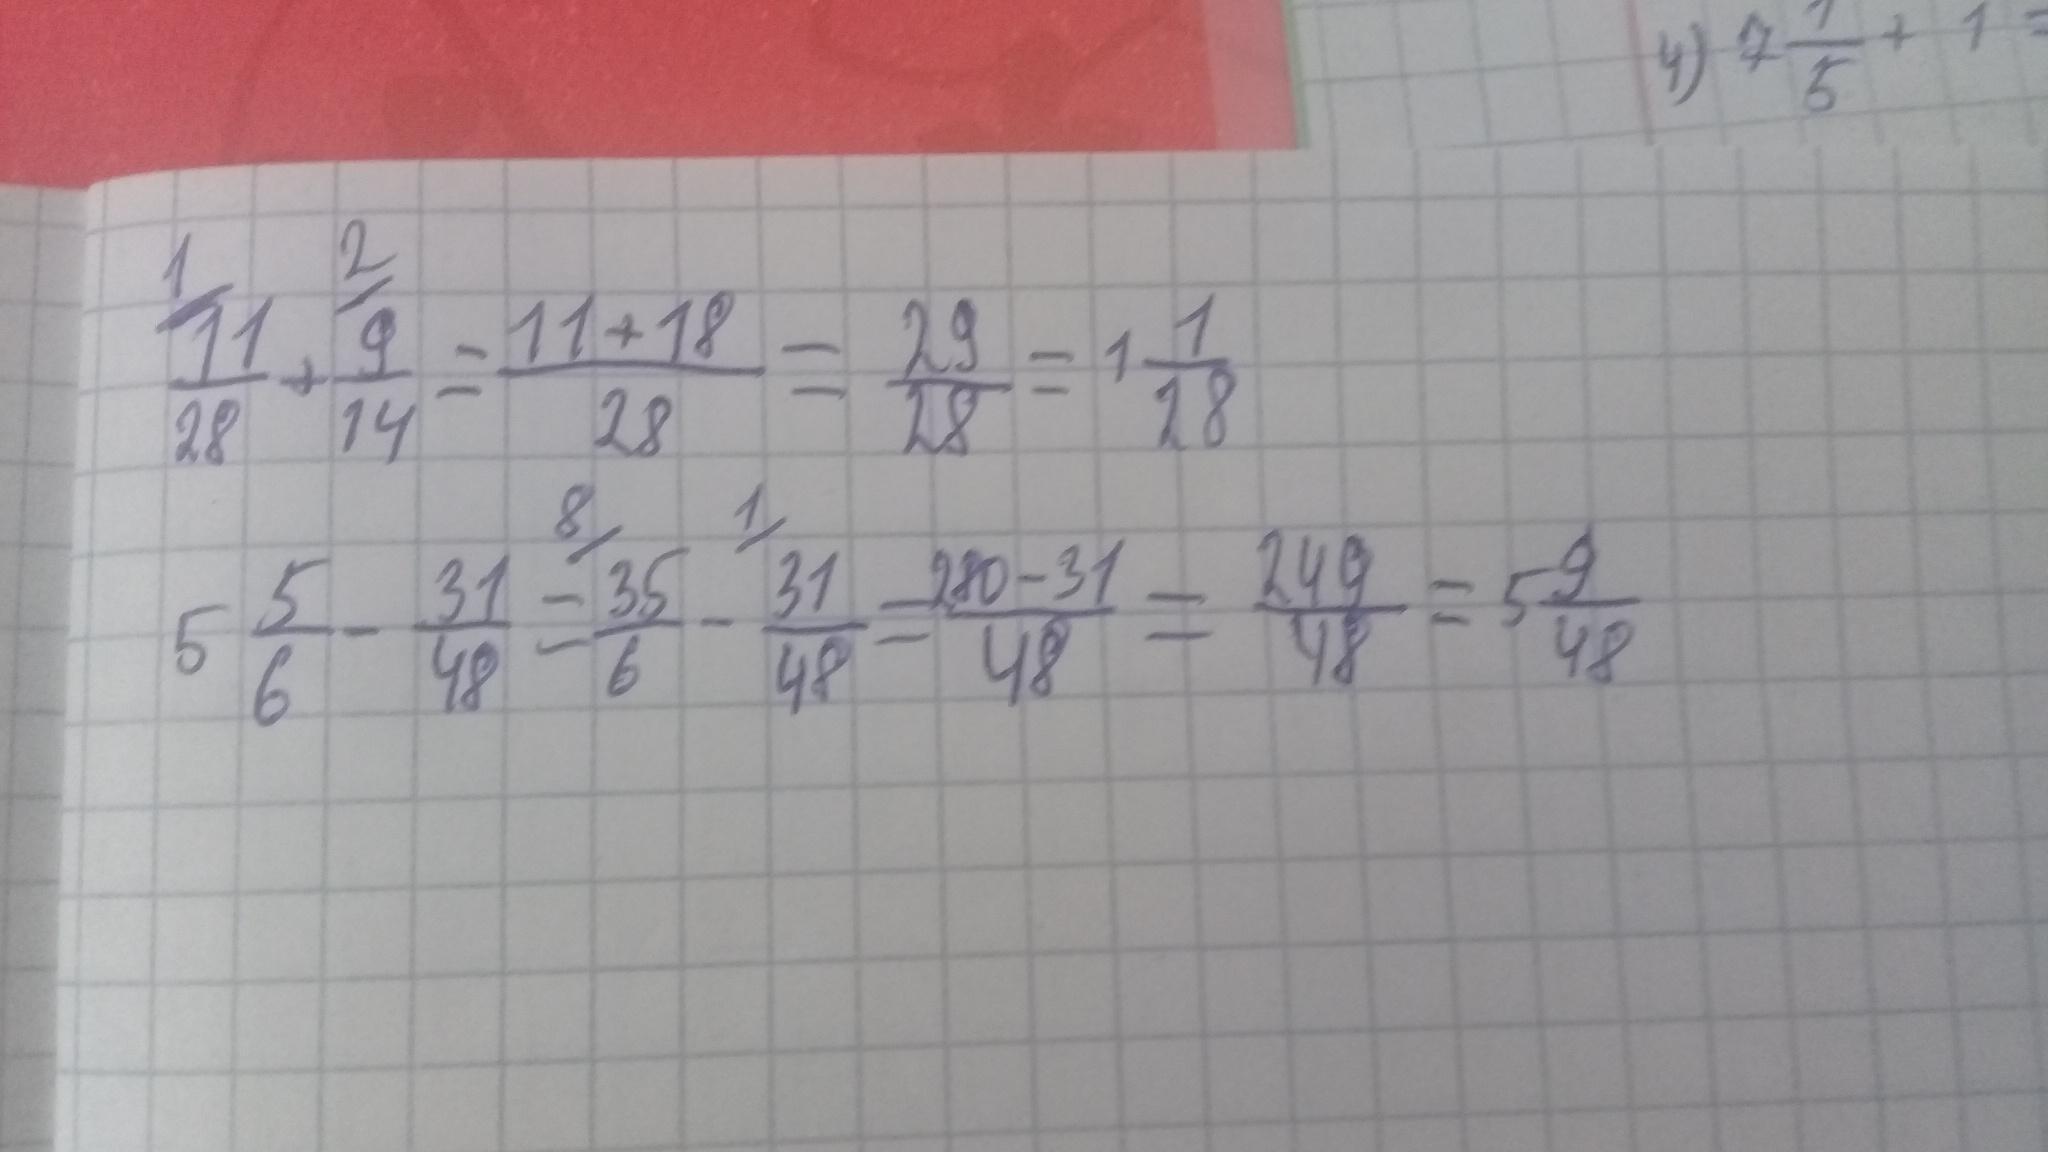 4) 7 1/5 + 1 =
1/ 2/
11/28 + 9/14 = (11+18)/28 = 29/28 = 1 1/28
8/ 1/
5 5/6 - 31/48 = 35/6 - 31/48 = (280-31)/48 = 249/48 = 5 9/48